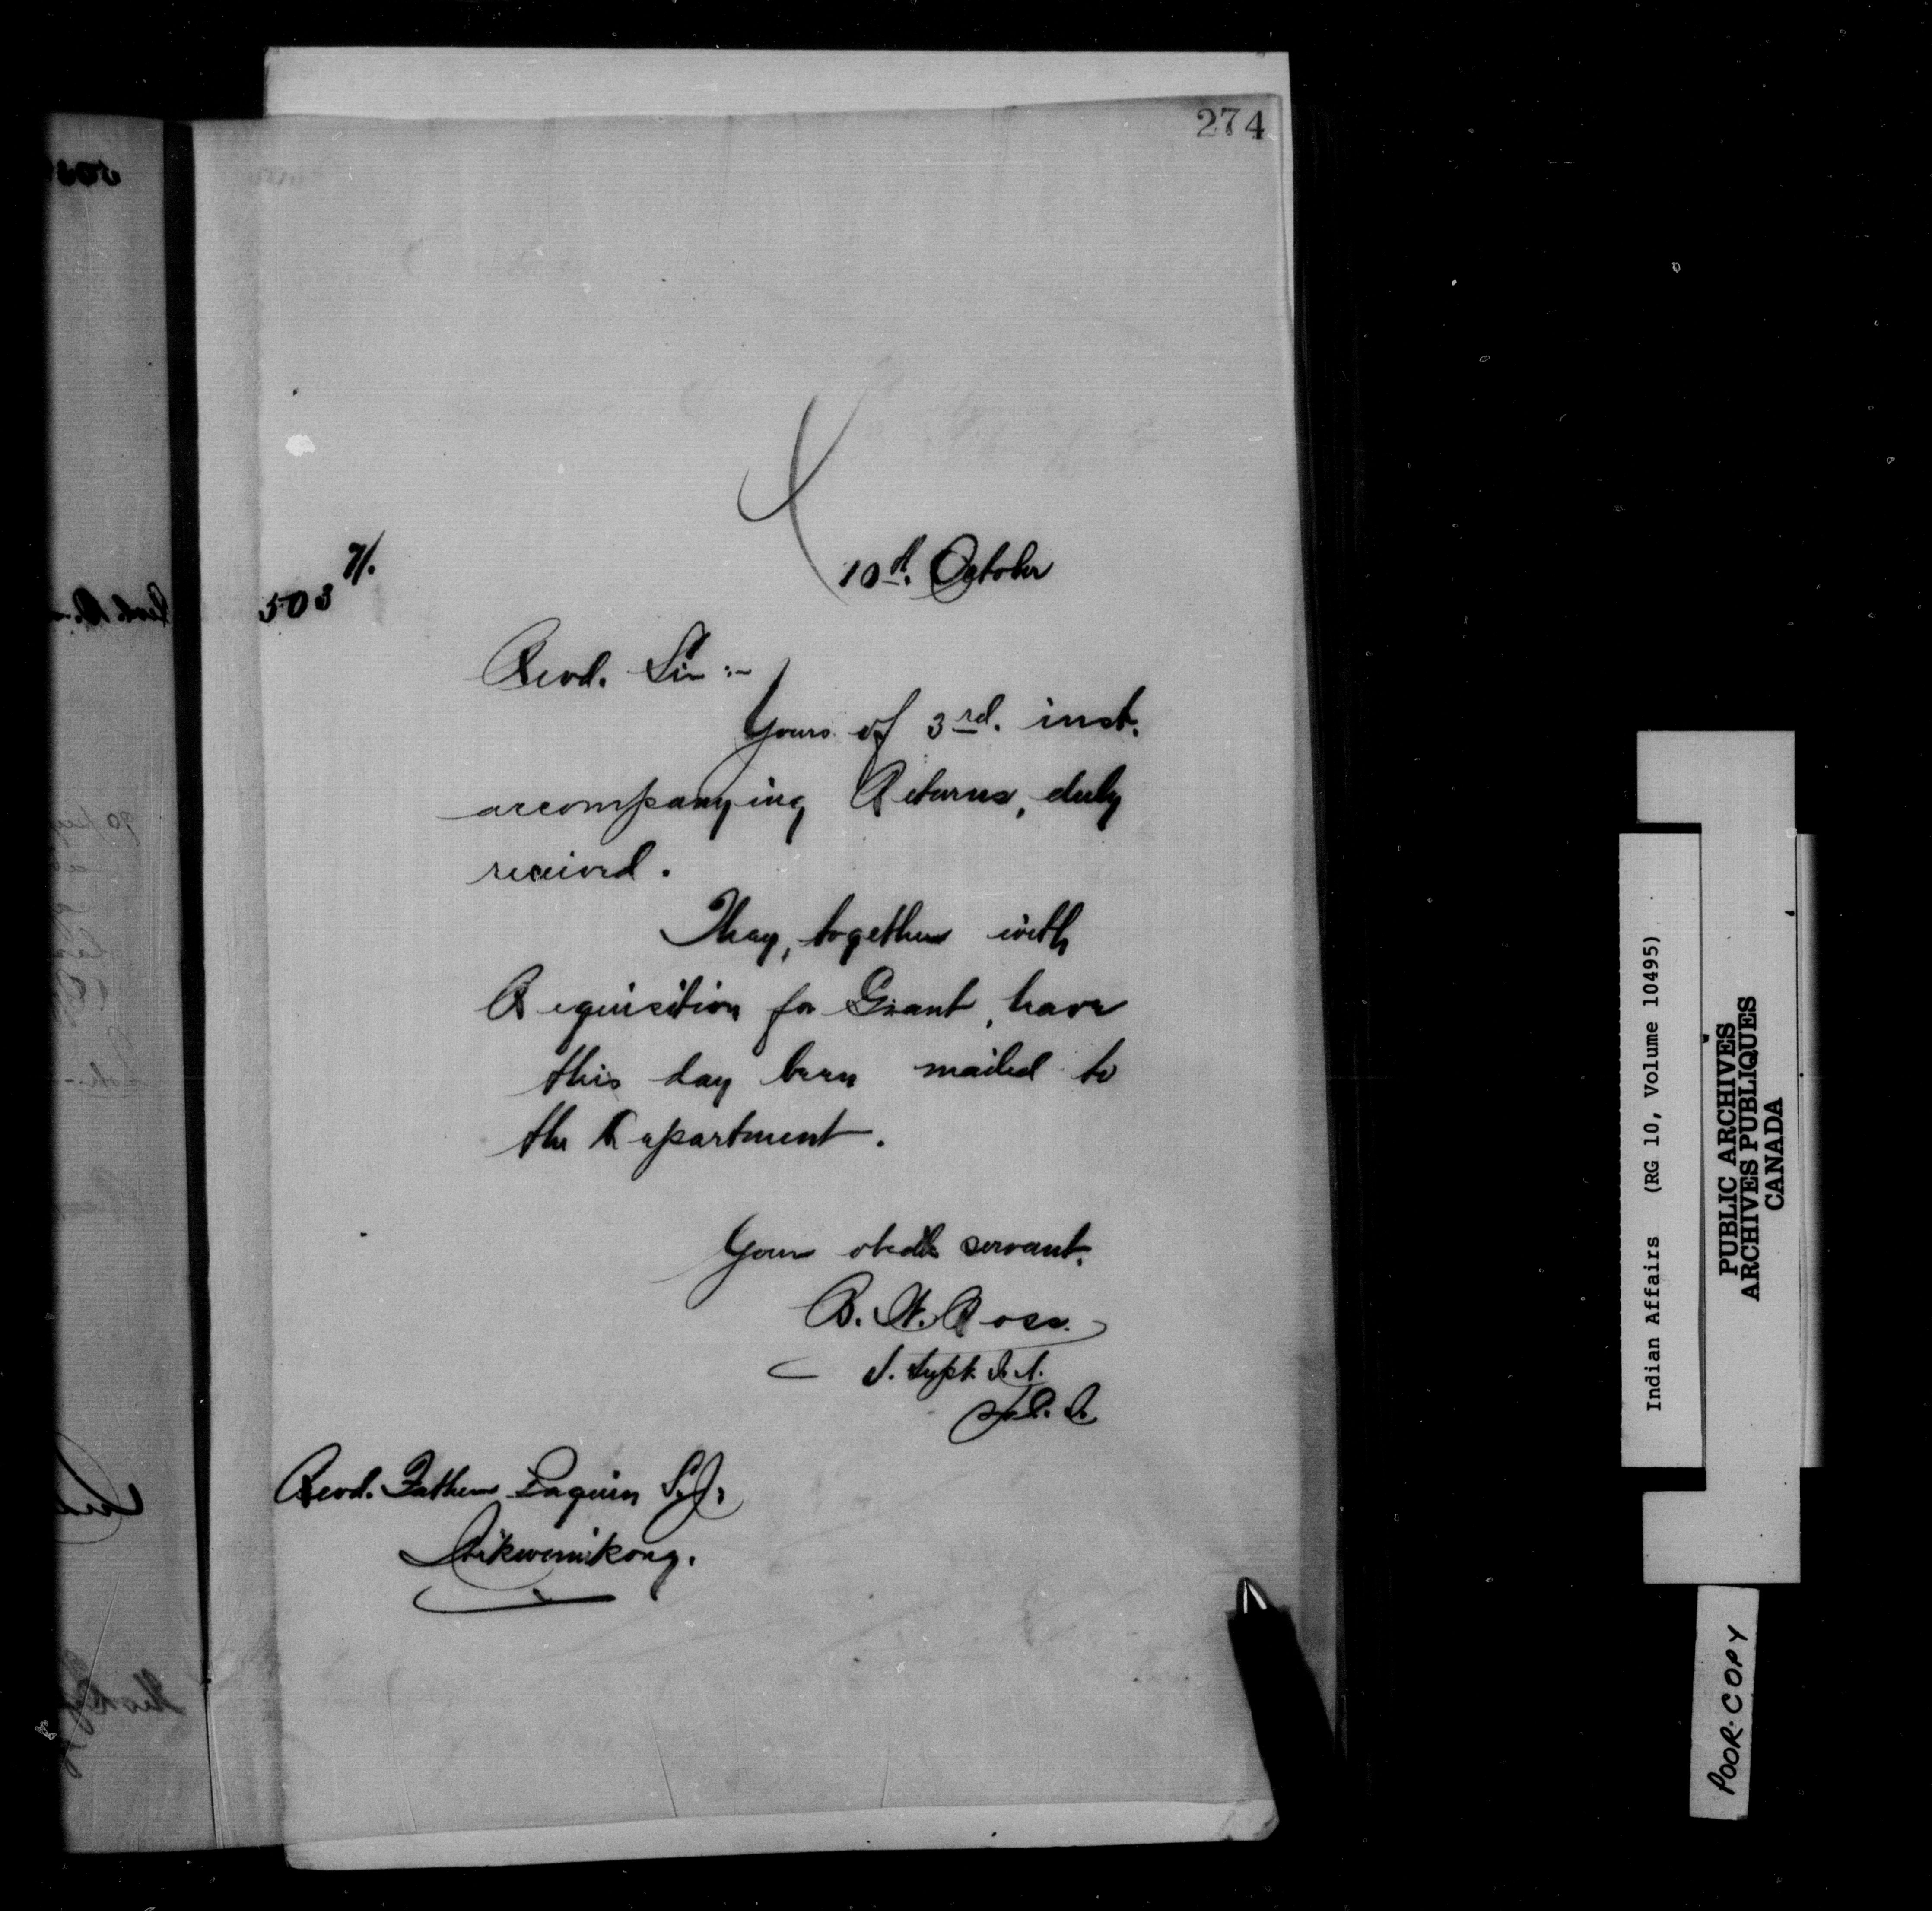 274
503 71.
10th. October
Revd. Sir :-
Yours of 3rd. inst.
accompanying Returns, duly
received.
They, together with
Requisition for Grant, have
this day been mailed to
the Department.
Your obedt servant.
B. W. Ross.
Supt. I. A.
Revd. Father Paquin S.J.
Wikwemikong.
Indian Affairs (RG 10, Volume 10495)
PUBLIC ARCHIVES
ARCHIVES PUBLIQUES
CANADA
POOR COPY